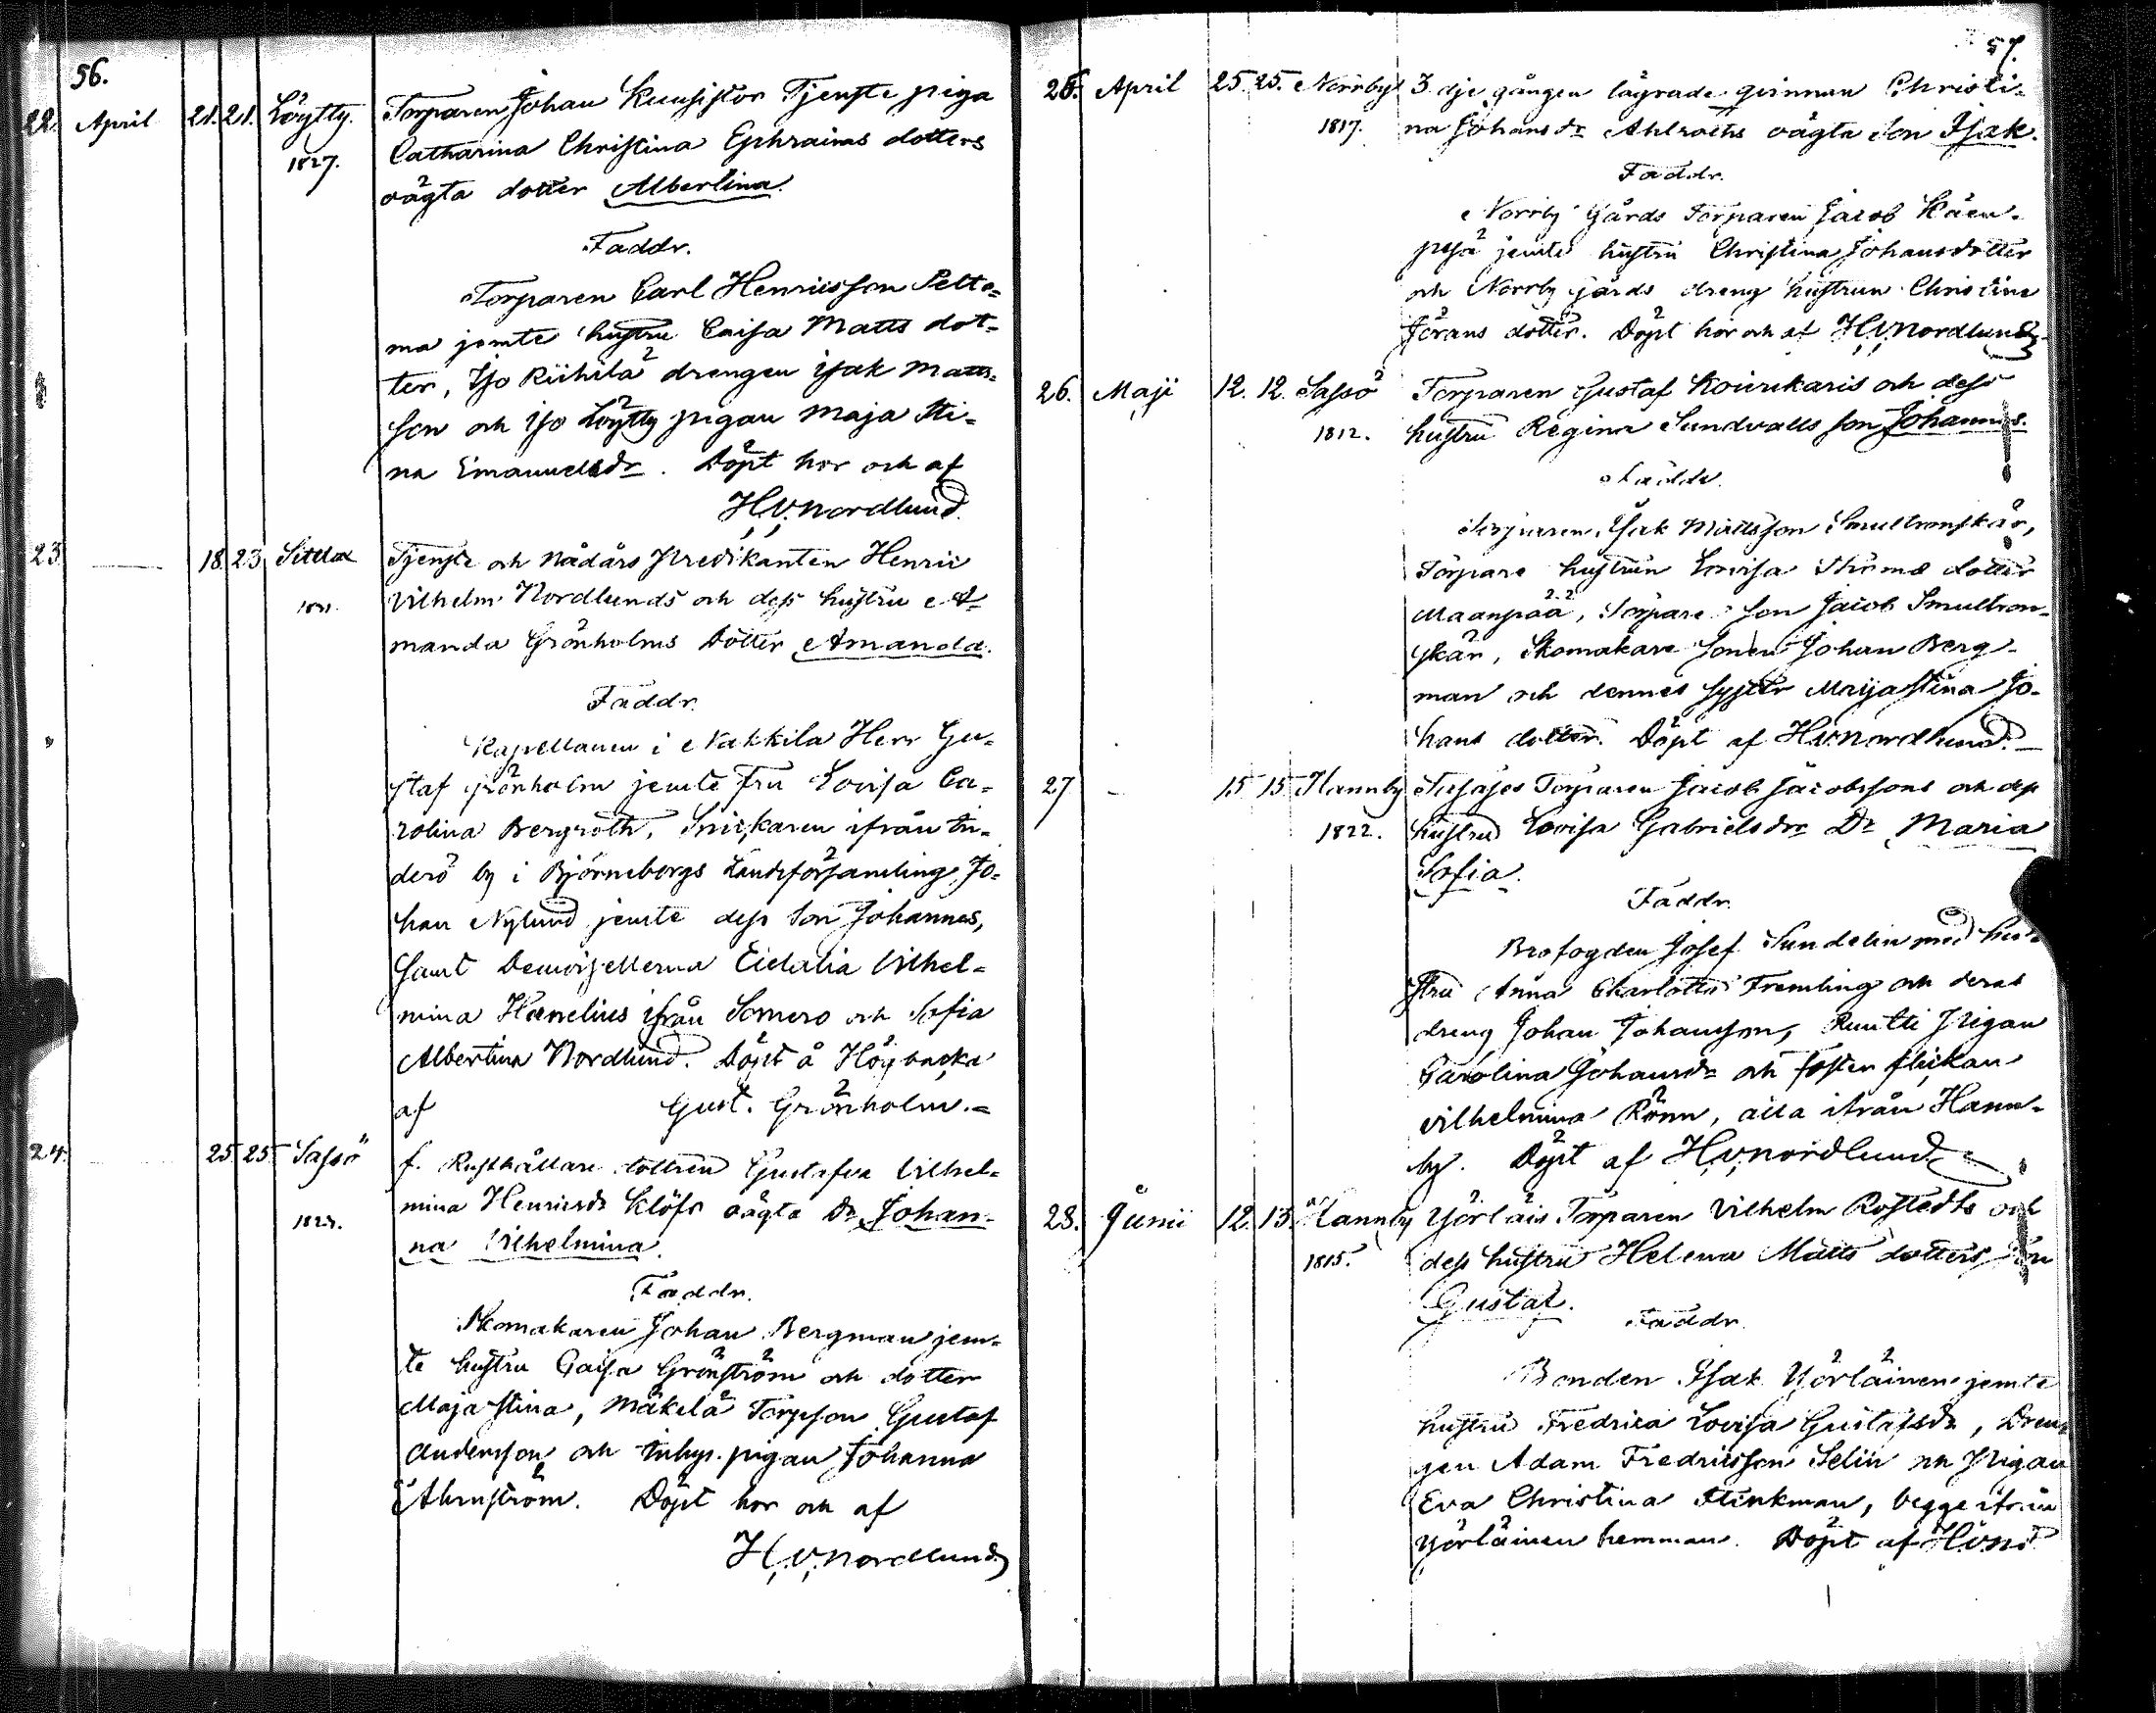 56.
22. April 21. 21. Löytty. Torparen Johan Kuusistos Tjenste piga
1827. Catharina Christina Ephraims dotters
oägta dotter Albertina.
Faddr.
Torparen Carl Henricsson Pelto=
ma jemte hustru Caisa Matts dot=
ter, Iso Riihilä drengen Isak Matts=
son och Iso Löytty pigan Maja Sti=
na Emanuelsdr. Döpt hos och af
H.V. Nordlund.
23. 18. 23. Sittlax Tjenste och Nådårs Predikanten Henric
1831. Vilhelm Nordlunds och dess hustru A=
manda Grönholms Dotter Amanda.
Faddr.
Kapellanen i Nakkila Herr Gu=
staf Grönholm jemte Fru Lovisa Ca=
rolina Bergroth, Snickaren ifrån In=
derö by i Björneborgs Landsförsamling, Jo=
han Nylund jemte dess Son Johannes,
samt Demoisellerna Eidalia Vilhel=
mina Hanelius ifrån Somero och Sofia
Albertina Nordlund. Döpt å Högbacka
af Gust. Grönholm.=
24. 25. 25. Sassö f. Rusthållare dottren Gustafva Vilhel=
mina Henricsdr Klöfs oägta Dr Johan=
na Vilhelmina.
Faddr.
Skomakaren Johan Bergman jem=
te hustru Caisa Grönström och dotter
Maja Stina, Mäkelä Torpson Gustaf
Andersson och inhys. pigan Johanna
Ahrnström. Döpt hos och af
H.V. Nordlund
57.
25. April 25. 25. Norrby 3 dje gången lägrade qvinnan Christi=
1817. na Johansdr Ahlroths oägta Son Isak.
Faddr.
Norrby Gårds Torparen Jacob Käen=
pesä jemte hustru Christina Johansdotter
och Norrby gårds dreng hustrun Christina
Görans dotter. Döpt hos och af H.V. Nordlund.
26. Maji 12. 12. Sassö Torparen Gustaf Koivukaris och dess
1812. hustru Regina Sundvalls son Johannes.
Faddr.
Torparen Isak Mattsson Smultronskär,
Torpare hustrun Lovisa dotter
Maanpää, Torpare Son Jacob Smultron=
skär, Skomakare Sonen Johan Berg=
man och dennes syster Maja Stina Jo=
hans dotter. Döpt af H.V. Nordlund.
27 - 15 15 Hannby Torparen Jacob Jacobssons och dess
1822. hustru Lovisa Gabrielsdrs Dr Maria
Sofia.
Faddr.
Brofogden Josef Sundelin med hu=
stru Anna Charlotta Fremling och deras
dreng Johan Johansson, Ruutti Pigan
Carolina Johansdr och foster flickan
Vilhelmina Rönn, alla ifrån Hann=
by. Döpt af H.V. Nordlund
28. Junii 12. 13. Hannby Yörläis Torparen Vilhelm Rostedts och
1815. dess hustru Helena Matts dotters Son
Gustaf.
Faddr.
Bonden Isak Yörläinen jemte
hustru Fredrica Lovisa Gustafsdr, Dren=
gen Adam Fredricsson Selin och Pigan
Eva Christina Stinkman, begge ifrån
Yörläinen hemman. Döpt af H.V.Nd